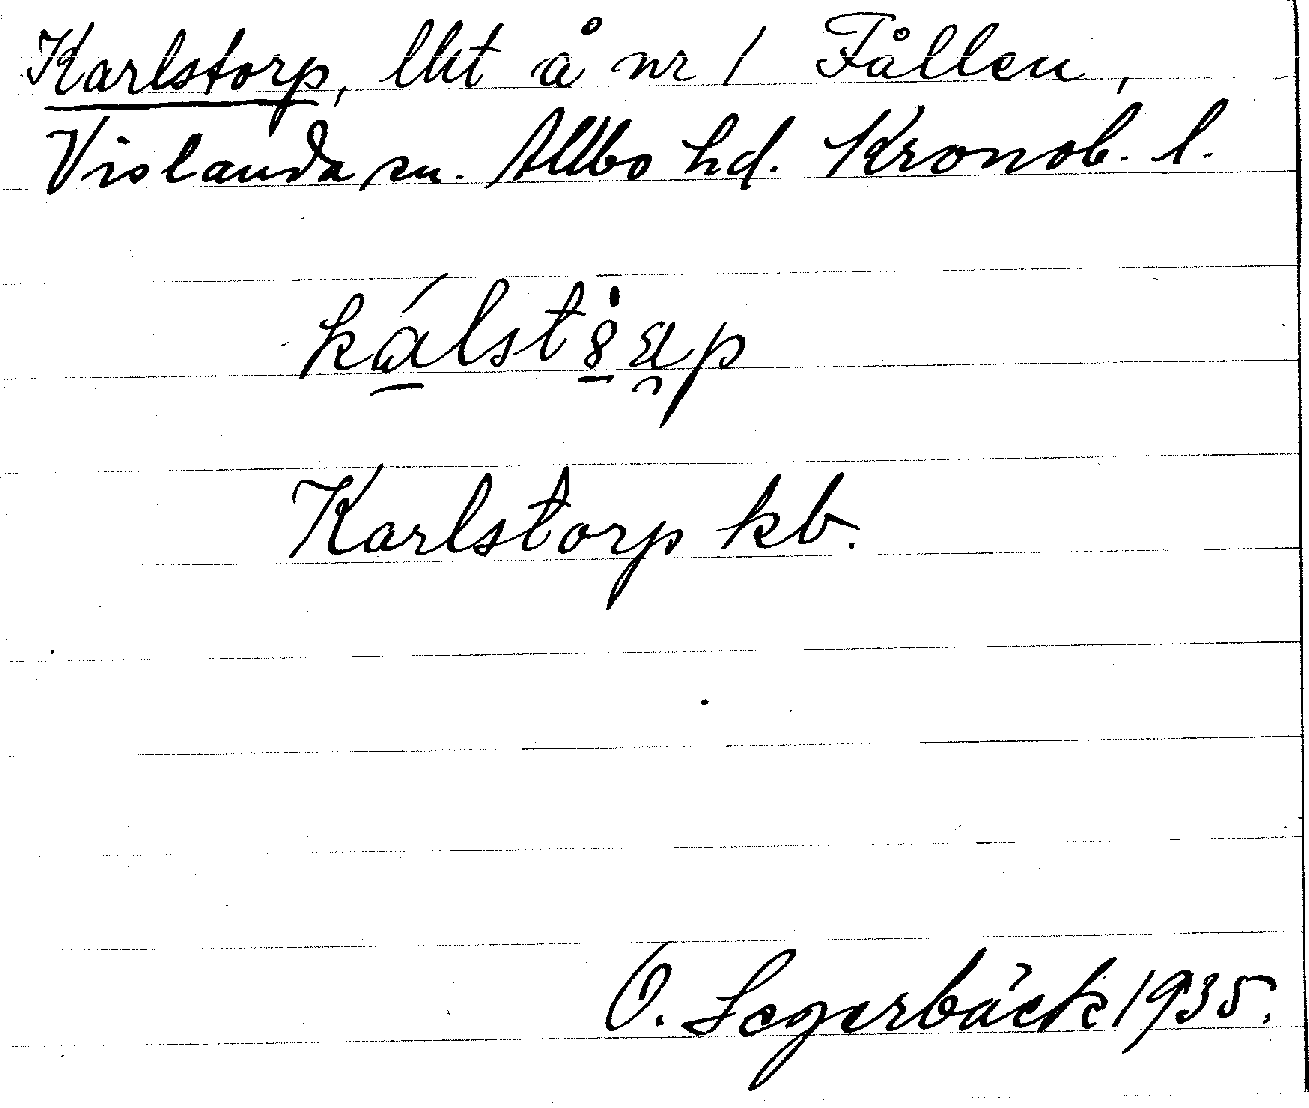 Karlstorp, lht å nr 1 Fållen,
Vislanda sn. Allbo hd. Kronob. l.
Karlstorp kb.
O. Segerbäck 1935.